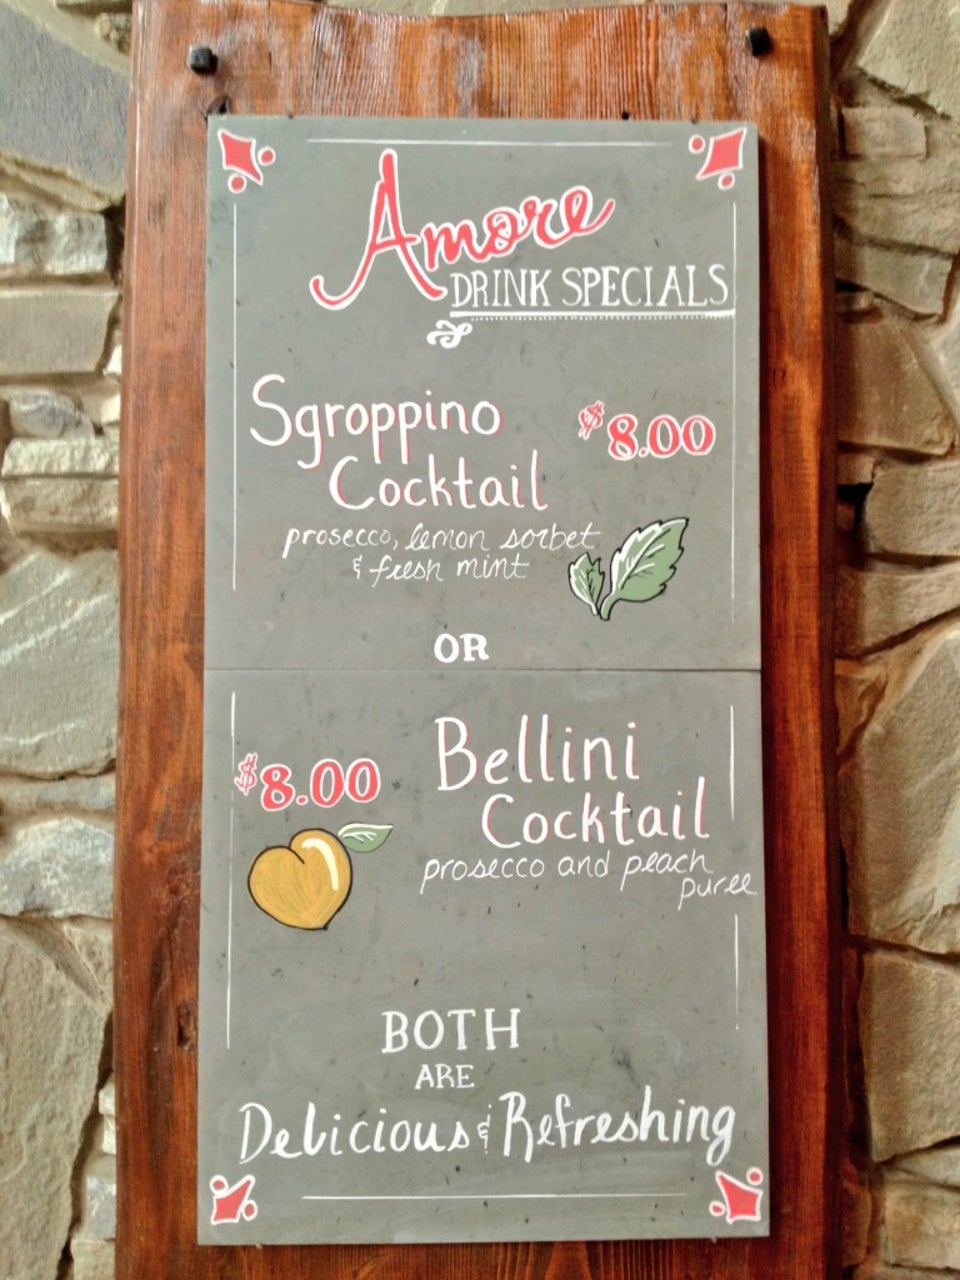 Amore
DRINK SPECIALS
Sgroppino
$8.00
Cocktail
prosecco, lemon sorbet
& fresh mint
OR
Bellini
$8.00
Cocktail
prosecco and peach
puree
BOTH
ARE
Delicious & Refreshing